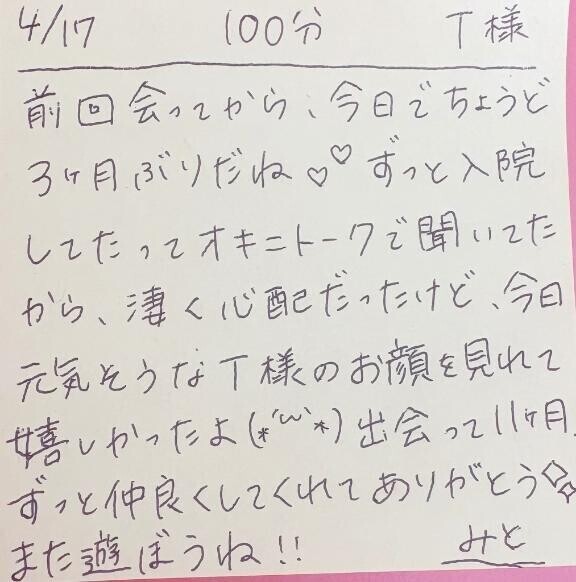 4/17 100分 T様
前回会ってから、今日でちょうど
3ヶ月ぶりだね♡♡ ずっと入院
してたってオキニトークで聞いてた
から、凄く心配だったけど、今日
元気そうなT様のお顔を見れて
嬉しかったよ(*´ω`*) 出会って11ヶ月、
ずっと仲良くしてくれてありがとう✧
また遊ぼうね!! みと